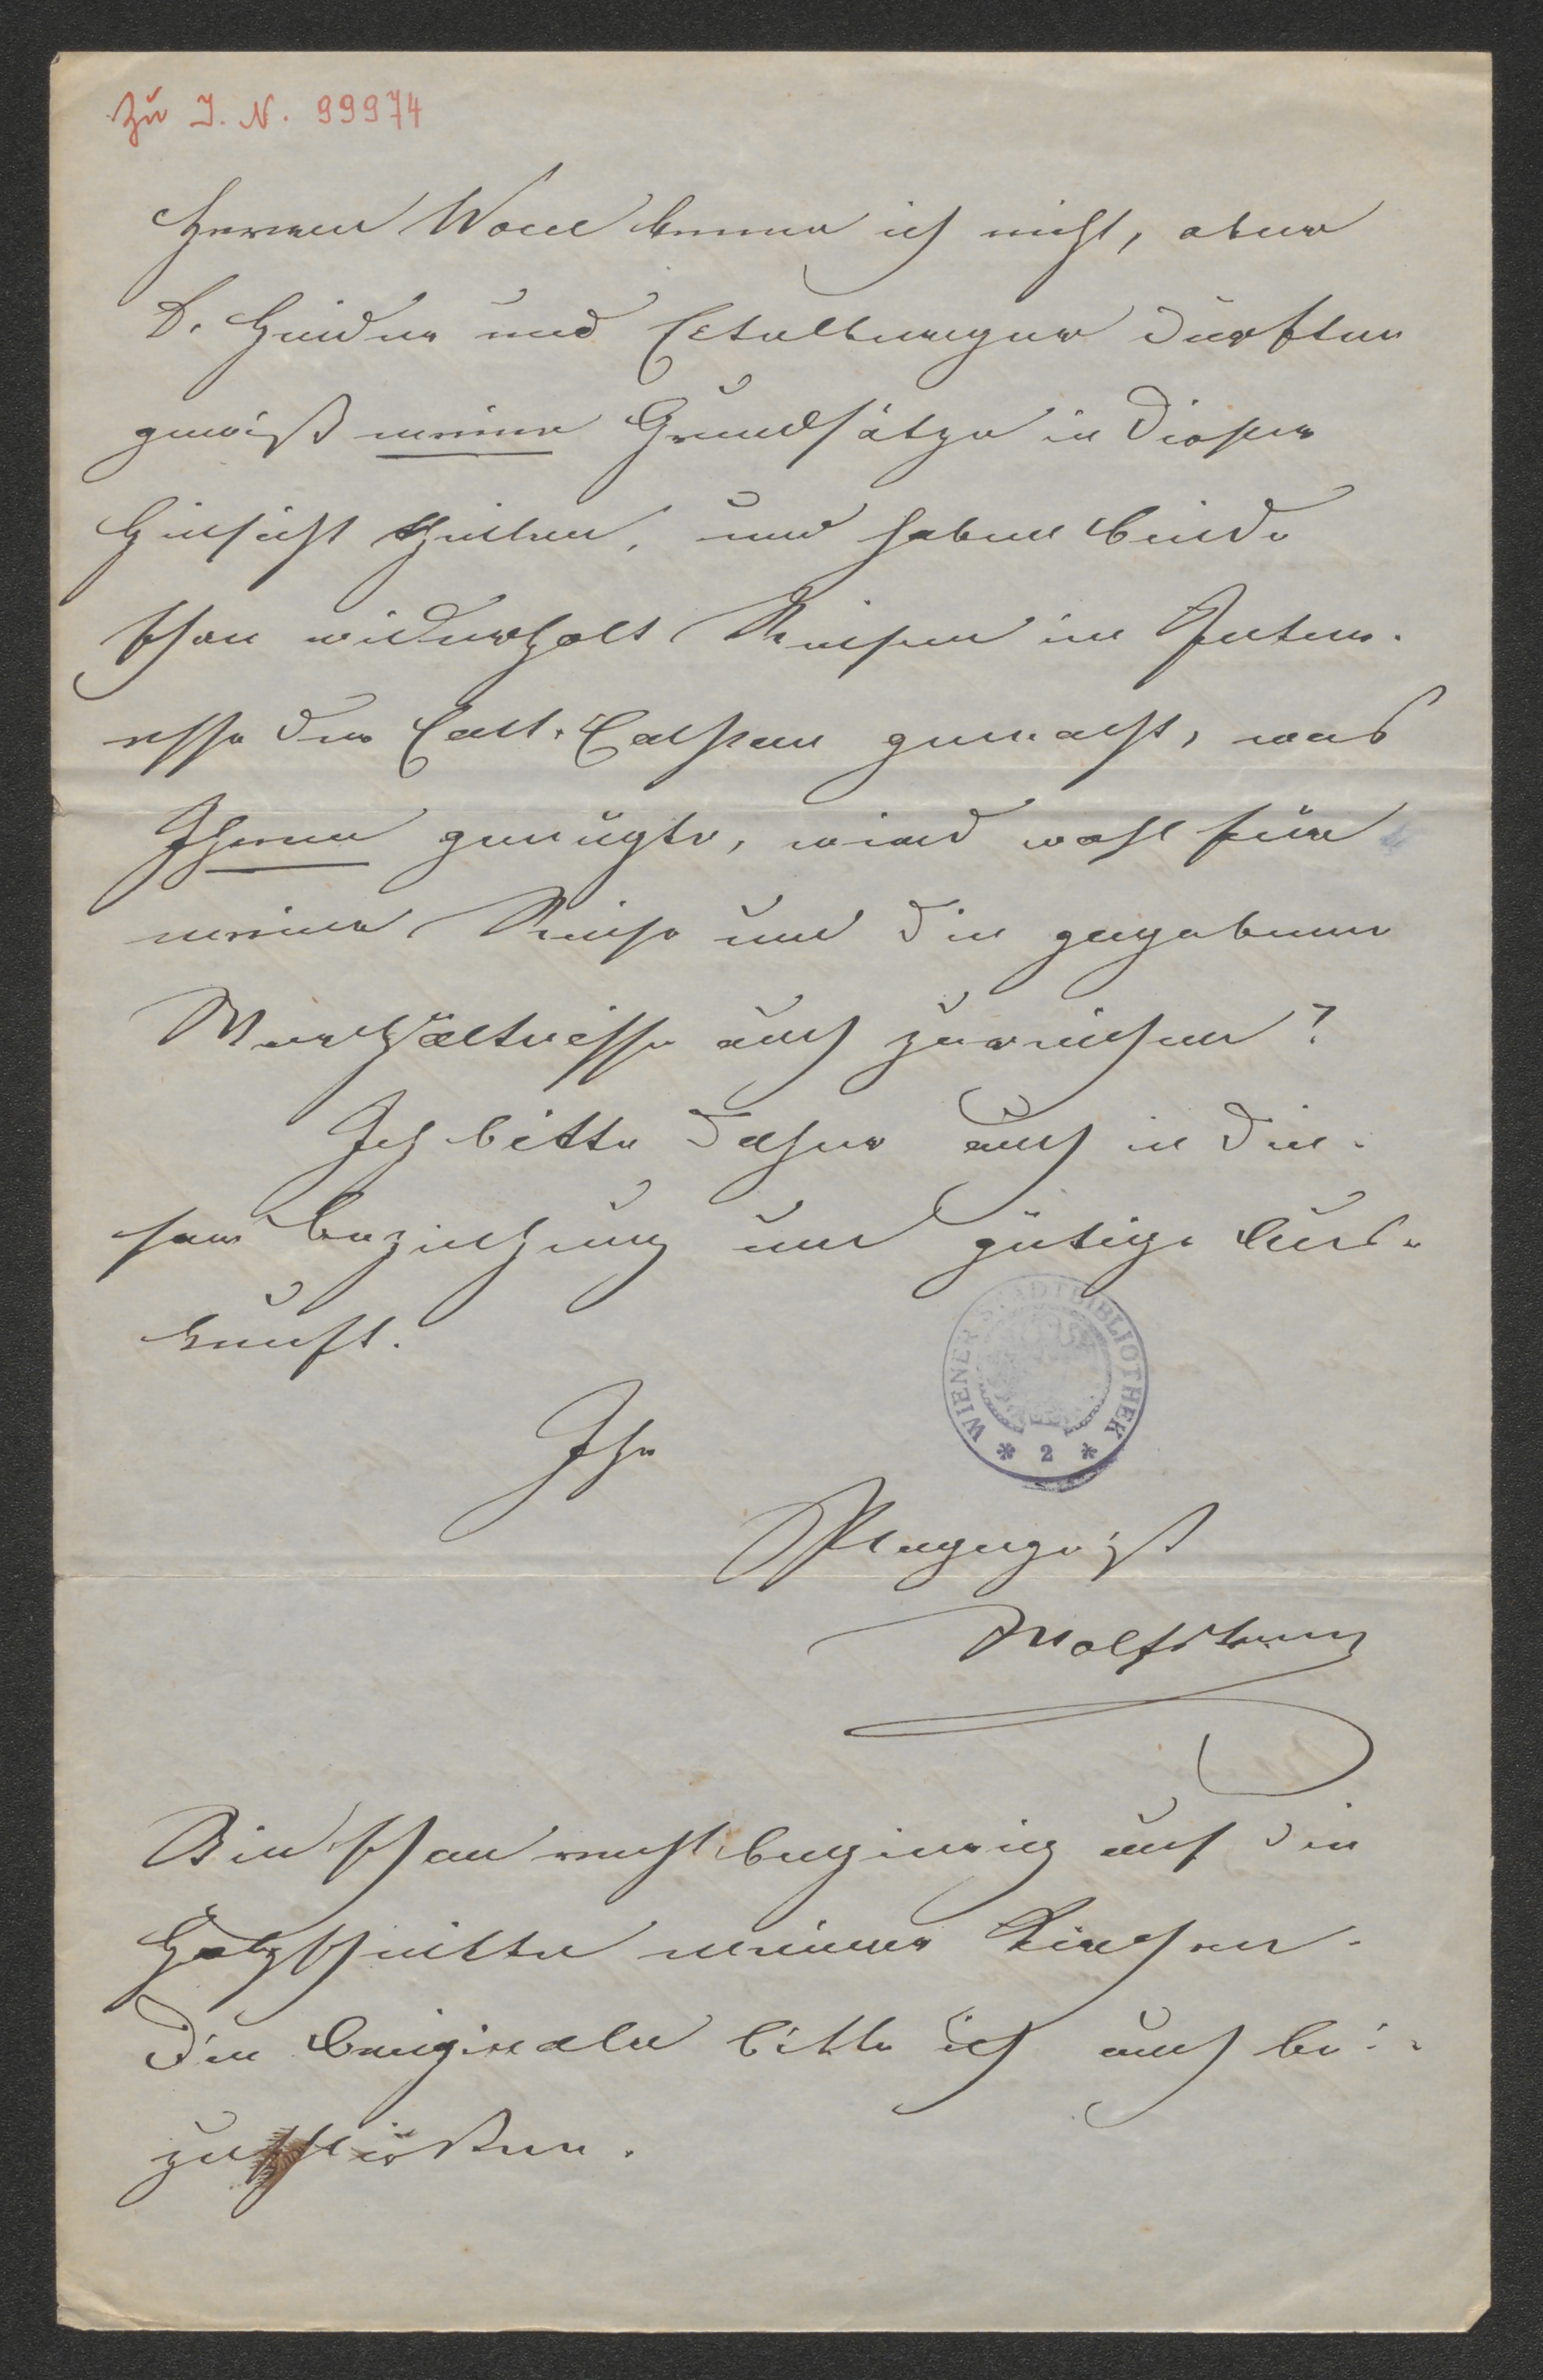 Zu I. N. 99974
Herrn Wocel kenne ich nicht, aber
D. Heider und Eitelberger dürften
gewiß meine Grundsätze in dieser
Hinsicht theilen, und haben beide
schon widerholt Reisen im Inter-
esse der Cent. Com̄ gemacht, was
Ihnen genügte, wird wohl für
meine Reise und die gegebenen
Verhältnisse auch zureichen?
Ich bitte daher auch in die-
ser Beziehung um gütige Aus-
kunft.
Ihr
Plagegeist
WIENER STADTBIBLIOTHEK
* 2 *
Bin schon recht begierig auf die
Holzschnitte meiner Kirchen.
Die Originale bitte ich auch bei-
zuschließen.